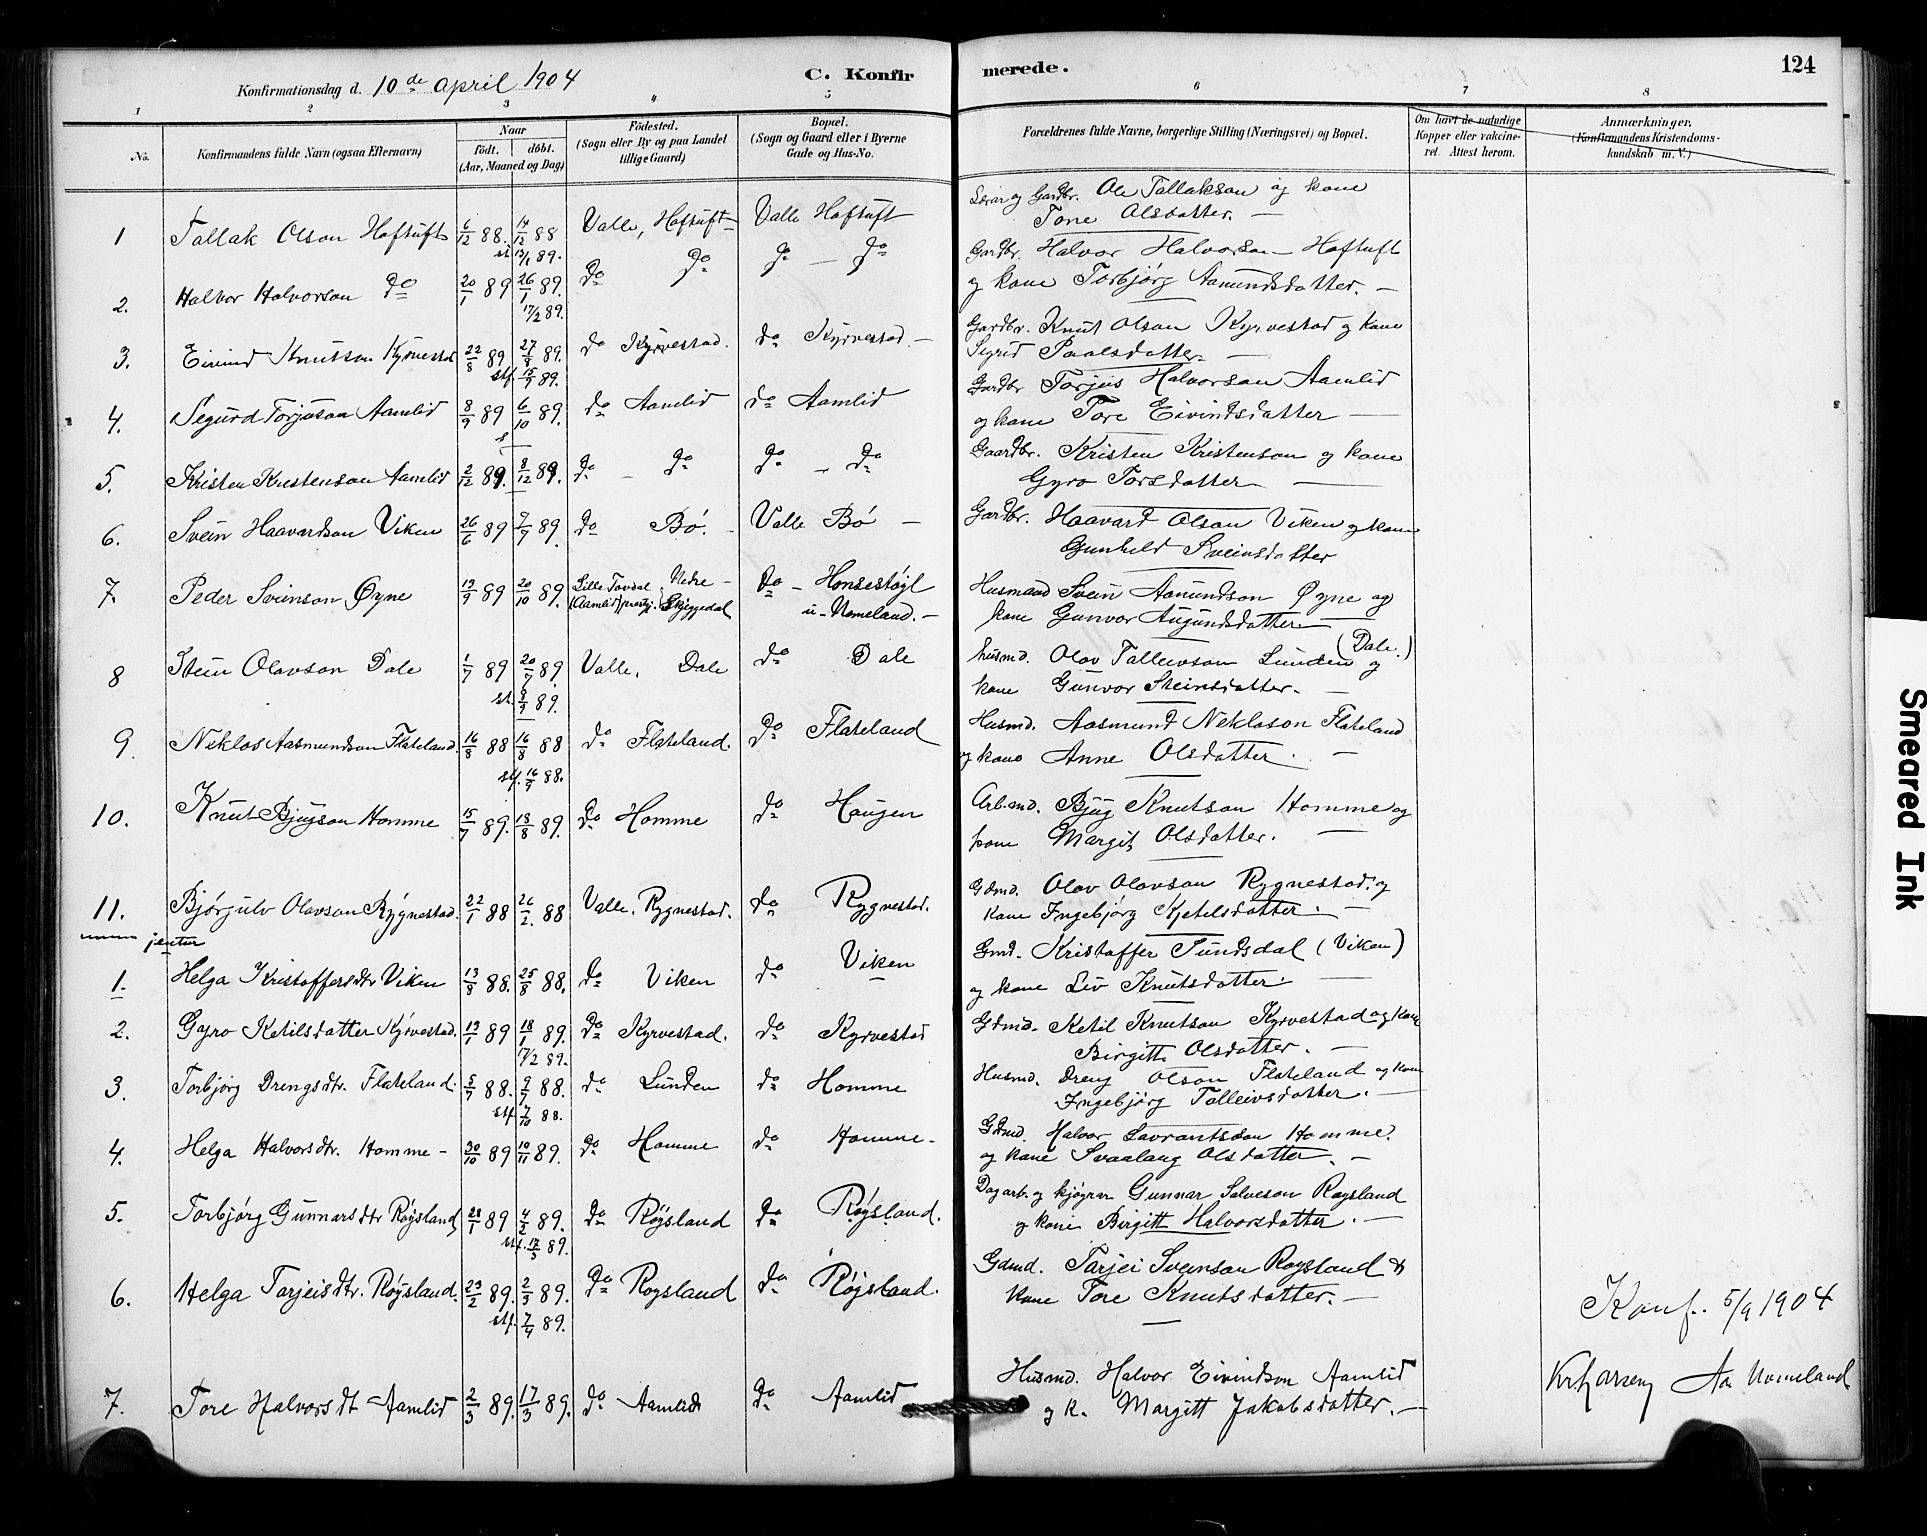 Konfirmationsdag d. 10de april 1904
C. Konfirmerede.
124
1 2 3 4 5 6 7 8
No.
Konfirmandens fulde Navn (ogsaa Efternavn)
Naar
født. døbt.
(Aar, Maaned og Dag)
Fødested.
(Sogn eller By og paa Landet tillige Gaard)
Bopæl.
(Sogn og Gaard eller i Byerne Gade og Hus-No.
Forældrenes fulde Navne, borgerlige Stilling (Næringsvei) og Bopæl.
Om havt de naturlige Kopper eller vakcineret. Attest herom.
Anmærkninger,
(Konfirmandens Kristendomskundskab m. V.)
1 Tallak Olson Hoftuft 6/12 88. 14/12 88 st. 13/1 89. Valle, Hoftuft Valle Hoftuft
Lærar og Gardbr. Ole Tallakson og kone
Tone Olsdatter. —
2. Halvor Halvorson do 20/1 89 26/1 89. 17/2 89. do do do — do
Gardbr. Halvor Halvorson Hoftuft
og kone Torbjørg Aamundsdatter. —
3. Eivind Knutson Kyrvestad 22/8 89 27/8 89. stf. 15/9 89. do Kyrvestad. do Kyrvestad —
Gardbr. Knut Olson Kyrvestad og kone
Sigrid Paalsdatter —
4. Segurd Torjuson Aamlid 8/9 89 6/10 89. do Aamlid do Aamlid
Gardbr Torjus Halvorson Aamlid
og kone Tore Eivindsdatter —
5. Kristen Kristenson Aamlid 2/12 89. 8/12 89. do — do do — do
Gaardbr. Kristen Kristenson og kone
Gyro Torsdatter —
6. Svein Haavardson Viken 26/6 89 7/7 89. do Bø. Valle Bø —
Gardbr. Haavard Olson Viken og kone
Gunhild Sveinsdatter
7. Peder Svenson Øyne 13/9 89 20/10 89. Lille Tovdal (Aamli) prestg. Nedre Skjeggedal do — Honsestøyl u. Nomeland. —
Husmand Svein Aanundson Øyne og
kone Gunvor Augundsdatter
8 Stein Olavson Dale 1/7 89 20/7 89. st. 8/9 89. Valle, Dale do Dale
husmd. Olav Talleivson Lunden (Dale.) og
kone Gunvor Steinsdatter. —
9. Neklos Aasmundson Flateland. 16/8 88 16/8 88 stf. 16/9 88. do Flateland. do Flateland
Husmd. Aasmund Neklason Flateland
og kone Anne Olsdatter. —
10. Knut Bjugson Homme 15/7 89. 18/8 89. do Homme do Haugen
Arb.md. Bjug Knutson Homme og
kone Margit Olsdatter. —
11. Bjørgulv Olavson Rygnestad. 22/1 88 26/2 88 Valle. Rygnestad. do Rygnestad.
Gdmd. Olav Olavson Rygnestad. og
kone Ingebjørg Kjetelsdatter. —
jentur
1. Helga Kristoffersdtr Viken 13/8 88. 25/8 88. do Viken do Viken
Gmd. Kristoffer Sundsdal (Viken)
og kone Liv Knutsdatter. —
2. Gyro Ketilsdatter Kyrvestad. 13/1 89 18/1 89. 17/2 89. do Kyrvestad. do Kyrvestad
Gdmd. Ketil Knutson Kyrvestad og kone
Birgitte Olsdatter. —
3. Torbjørg Drengsdtr. Flateland. 5/7 88. 9/7 88. stf. 7/10 88. do Lunden do Homme
Husmd. Dreng Olson Flateland og kone
Ingebjørg Talleivsdatter. —
4. Helga Halvorsdtr. Homme — 30/10 89 10/11 89. do Homme do Homme —
Gdmd. Halvor Lavrantsson Homme.
og kone Svaalaug Olsdatter. —
5. Torbjørg Gunnarsdtr Røysland 28/1 89 4/2 89. stf. 17/3 89. do Røysland do Røysland.
Dagarb. og Gunnar Salveson Roysland
og kone Birgitt Halvorsdatter. —
6. Helga Torjeisdtr. Røysland. 23/2 89. 2/3 89. stf. 7/4 89. do Roysland do Røysland.
Gdmd. Tarjei Sveinson Roysland &
kone Tore Knutsdatter. —
Konf. 5/9 1904
7. Tore Halvorsdt Aamlid 2/3 89. 17/3 89. do Aamlid do Aamlid
Husmd. Halvor Eivindson Aamlid
og k. Margitt Jakobsdatter. —
Nomeland
Smeared Ink